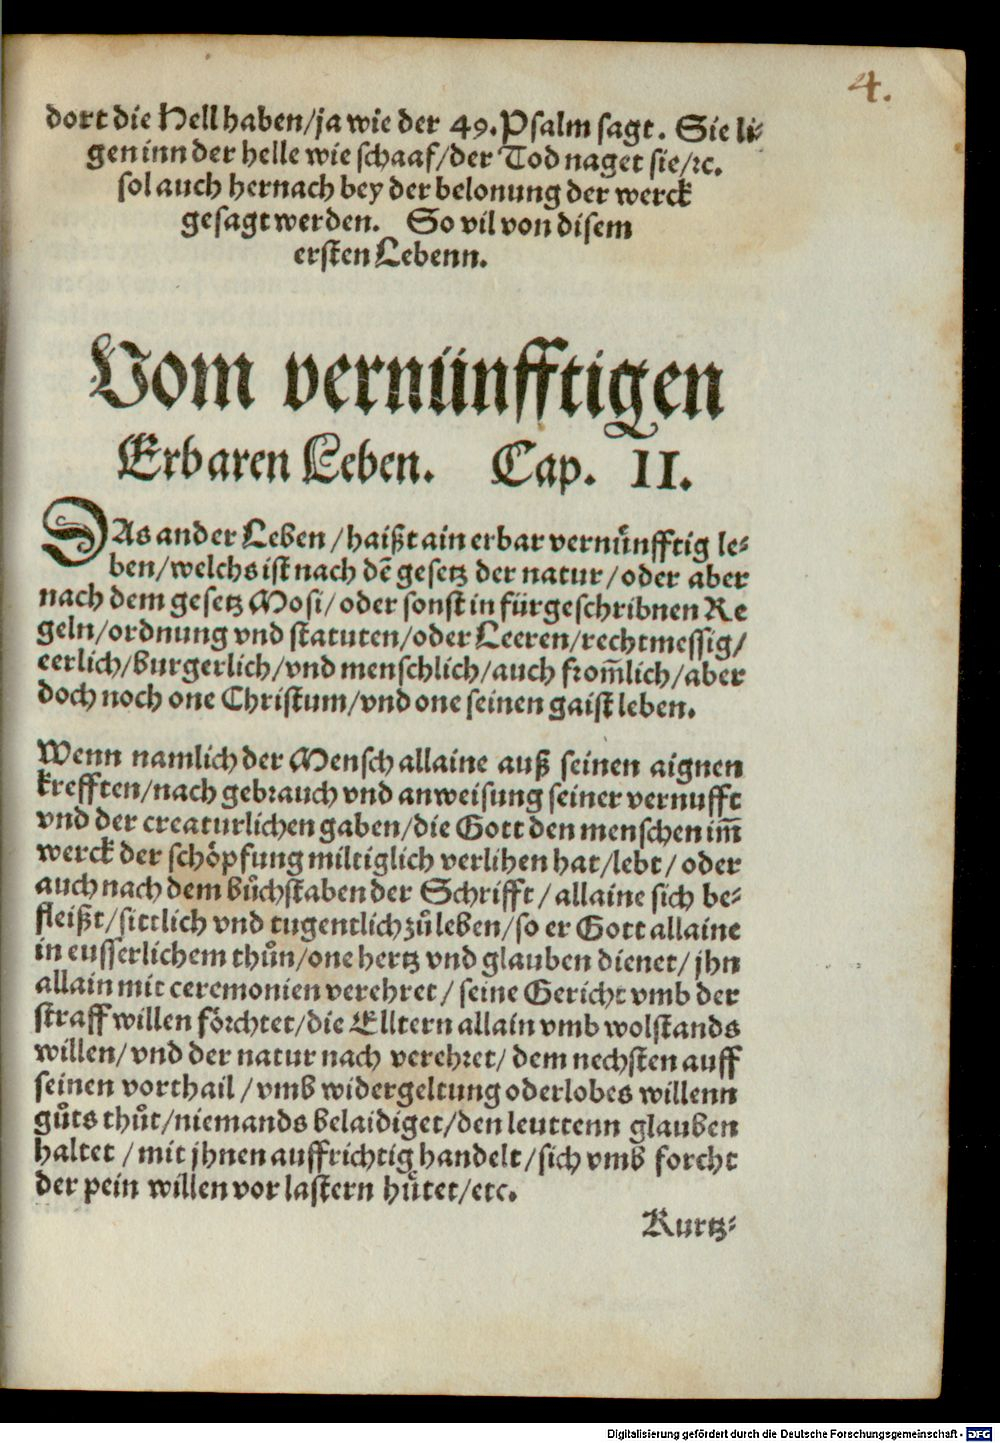 4.
dort die Hell haben/ja wie der 49. Psalm sagt. Sie li⸗
gen inn der helle wie schaaf/der Tod naget sie/ꝛc.
sol auch hernach bey der belonung der werck
gesagt werden. So vil von disem
ersten Lebenn.
Vom vernünfftigen
Erbaren Leben. Cap. II.
DAs ander Leben/haißt ain erbar vernünfftig le⸗
ben/welchs ist nach dē gesetz der natur/oder aber
nach dem gesetz Mosi/oder sonst in fürgeschribnen Re
geln/ordnung vnd statuten/oder Leeren/rechtmessig/
eerlich/burgerlich/vnd menschlich/auch from̃lich/aber
doch noch one Christum/vnd one seinen gaist leben.
Wenn namlich der Mensch allaine auß seinen aignen
krefften/nach gebrauch vnd anweisung seiner vernufft
vnd der creaturlichen gaben/die Gott den menschen im̃
werck der schöpfung miltiglich verlihen hat/lebt/oder
auch nach dem bůchstaben der Schrifft/allaine sich be⸗
fleißt/sittlich vnd tugentlich zů leben/so er Gott allaine
in eusserlichem thůn/one hertz vnd glauben dienet/jhn
allain mit ceremonien verehret/seine Gericht vmb der
straff willen förchtet/die Elltern allain vmb wolstands
willen/vnd der natur nach verehret/dem nechsten auff
seinen vorthail/vmb widergeltung oder lobes willenn
gůts thůt/niemands belaidiget/den leuttenn glauben
haltet/mit jhnen auffrichtig handelt/sich vmb forcht
der pein willen vor lastern hůtet/etc.
Kurtz⸗
Digitalisierung gefördert durch die Deutsche Forschungsgemeinschaft - DFG